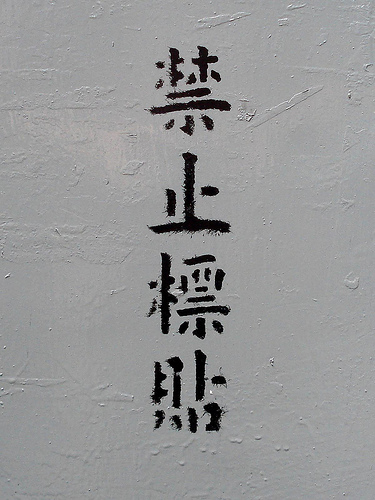 禁止標貼